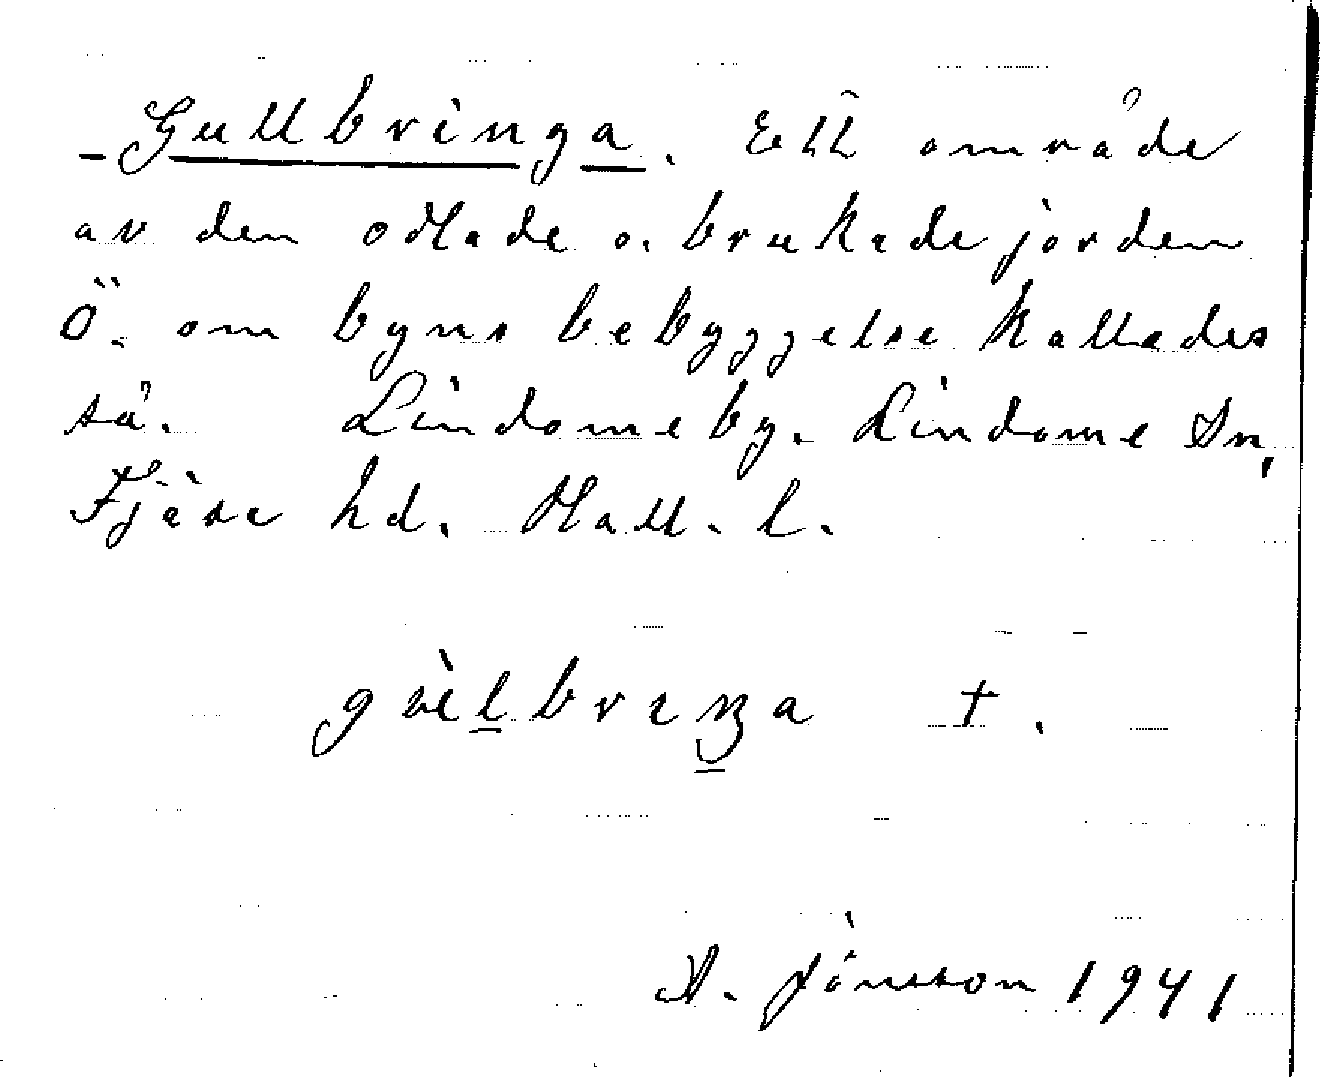 Gullbringa. Ett område
av den odlade o. brukade jorden
Ö. om byns bebyggelse kallades
så. Lindomeby. Lindome Sn,
Fjäre hd. Hall. l.
†.
A. Jönsson 1941